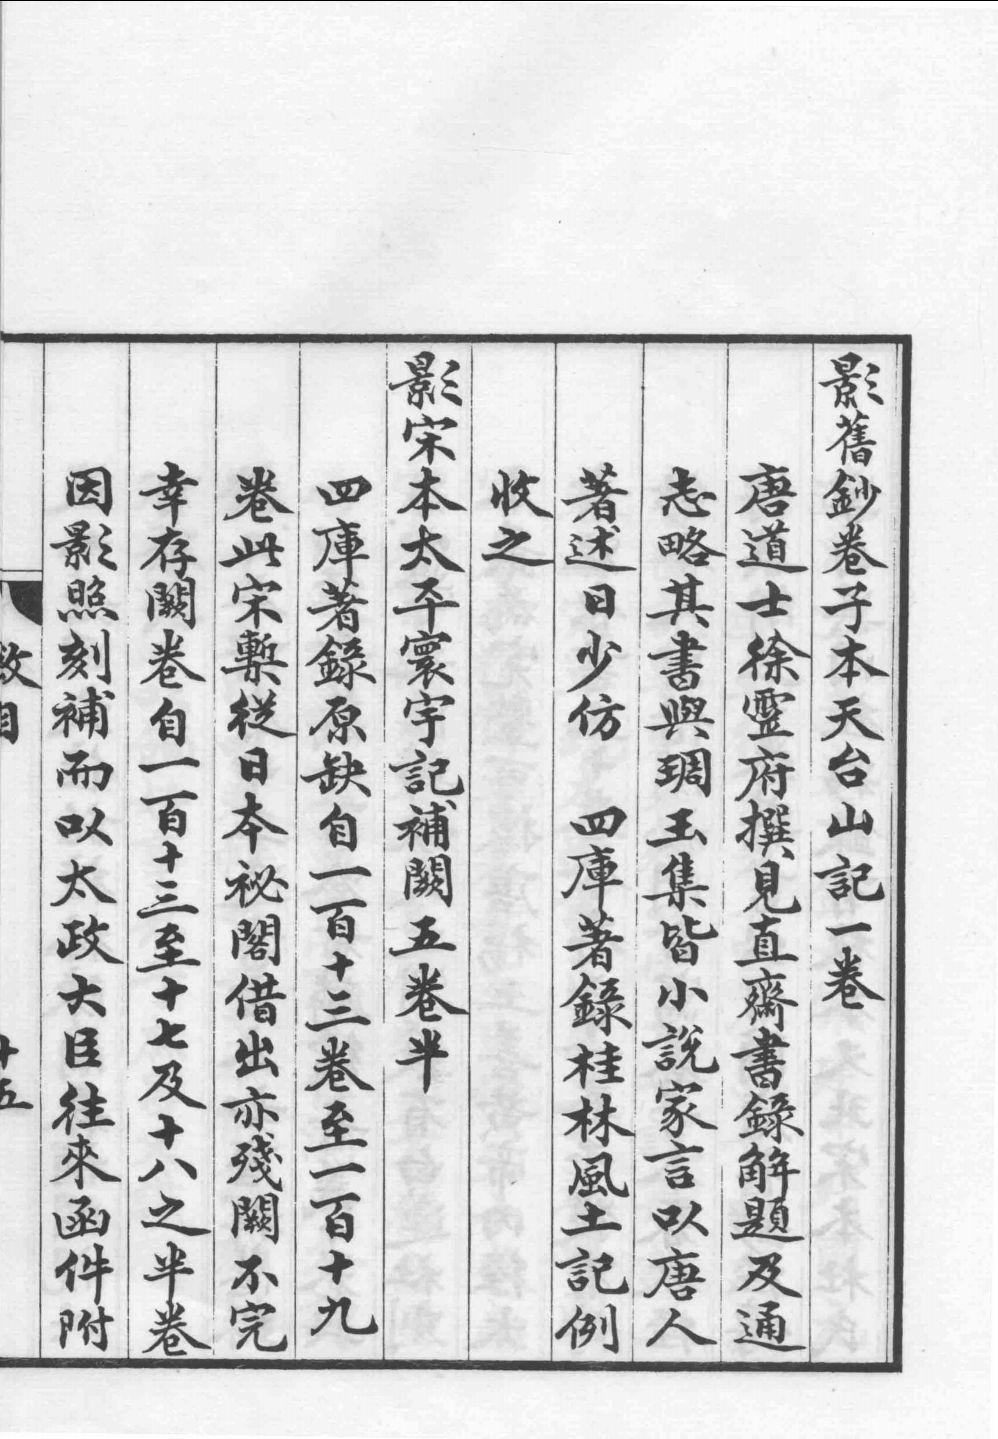 影舊鈔卷子本天台山記一卷
唐道士徐靈府撰見直齋書錄解題及通
志略其書與琱玉集皆小說家言以唐人
著述日少仿　四庫著錄桂林風土記例
收之
影宋本太平寰宇記補闕五卷半
四庫著錄原缺自一百十三卷至一百十九
卷此宋槧從日本祕閣借出亦殘闕不完
幸存闕卷自一百十三至十七及十八之半卷
因影照刻補而以太政大臣往來函件附
敘目
十五